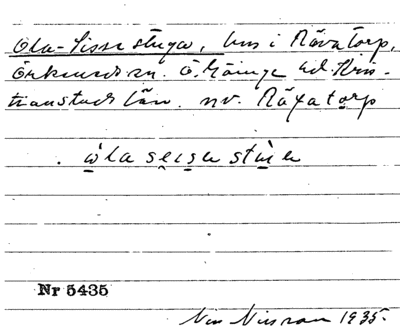 Ola-Sissestuga, hus i Rävatorp,
Örkeneds sn. Ö. Göinge hd. Kris-
tianstads län. nv. Räxatorp
. ὼla sei̭sa stùa
Nr 5435
Nilsson 1935.